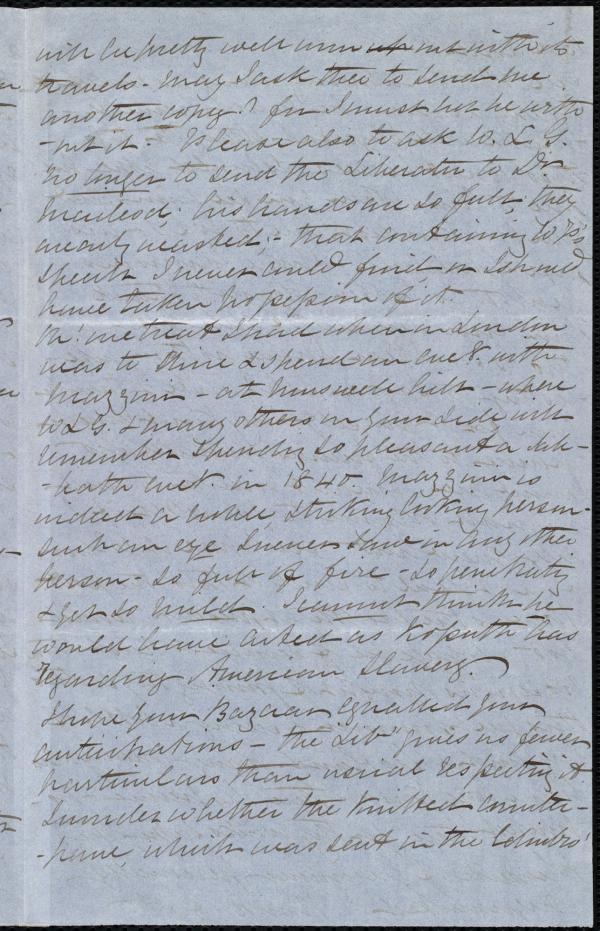 will be pretty well worn out with its
travels - May I ask thee to send me
another copy? for I must not be with
-out it - Please also to ask W. L. G.
no longer to send the Liberator to Dr
Macleod; his hands are so full, they
are only wasted; - that containing W P's
speech I never could find, or I should
have taken possession of it.
Oh! one treat I had when in London
was to dine & spend an eveg. with
Mazzini - at Muswell hill - where
W L G. & many others on your side will
remember spending so pleasant a Sab-
-bath eveg. in 1840. Mazzini is
indeed a noble, striking looking person -
such an eye I never saw in any other
person - so full of fire - so penetrating
& yet so mild. I cannot think he
would have acted as Kossuth has
regarding American Slavery.
I hope your Bazaar equalled your
anticipations - the Libr. gives us fewer
particulars than usual respecting it
I wonder whether the knitted counter-
-pane, which was sent in the Edinbro'